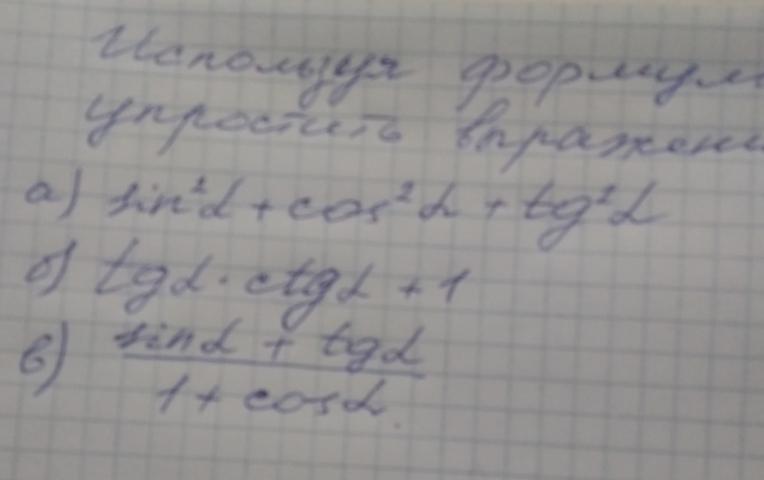 Используя формул
упростить выражени
а) sin²α + cos²α + tg²α
б) tgα · ctgα + 1
в) sinα + tgα
1 + cosα